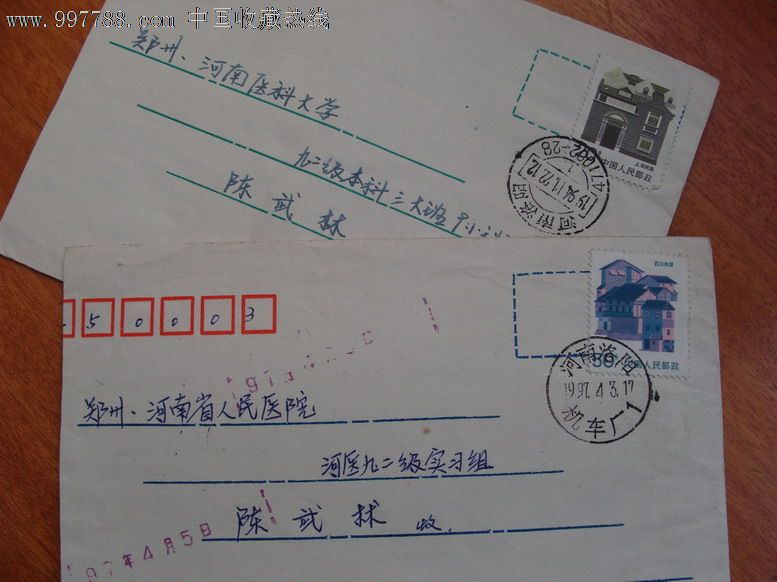 www.997788.com 中国收藏热线
郑州、河南医科大学
九二级本科三大班
陈武林
上海民居
中国人民邮政
1994.11.22.12
河南洛阳
50003
四川民居
中国人民邮政
河南洛阳
1997.4.3.17
机车厂1
郑州、河南省人民医院
河医九二级实习组
陈武林 收
年4月5日